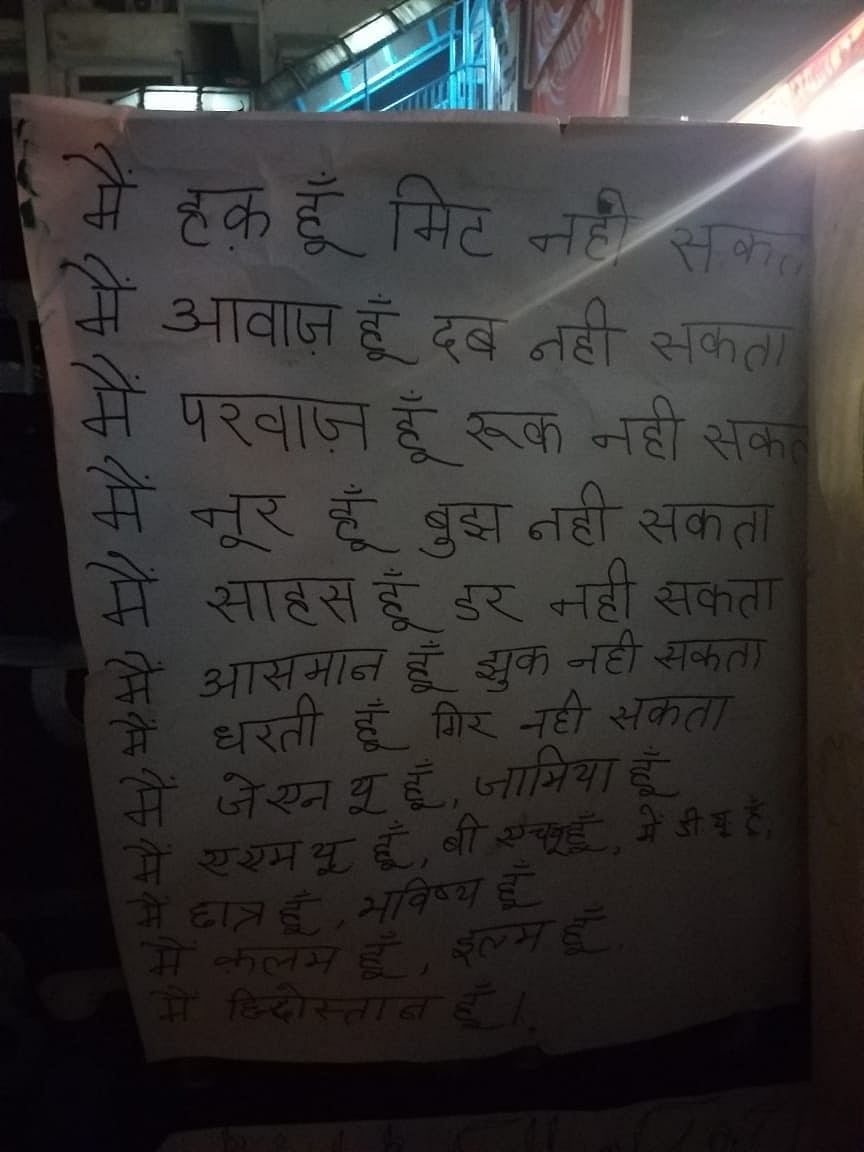 मैं हक़ हूँ मिट नही सकता
मैं आवाज़ हूँ दब नही सकता
मैं परवाज़ हूँ रूक नही सकता
मैं नूर हूँ बुझ नही सकता
मैं साहस हूँ डर नही सकता
मैं आसमान हूँ झुक नही सकता
मैं धरती हूँ गिर नही सकता
मैं जे एन यू हूँ, जामिया हूँ
मैं ए एम यू हूँ, बी एच यू हूँ, मैं डी यू हूँ,
मैं छात्र हूँ, भविष्य हूँ
मैं क़लम हूँ, इल्म हूँ
मैं हिन्दोस्तान हूँ।